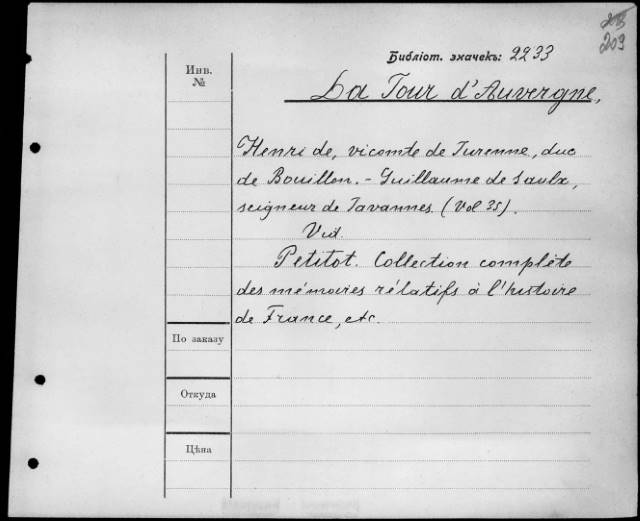 203
Библіот. значекъ: 2233
Инв.
№
La Tour d'Auvergne,
Henri de, vicomte de Turenne, duc
de Bouillon. - Guillaume de Saulx,
seigneur de Tavannes (Vol 35).
Vid.
Petitot. Collection complète
des mémoires rélatifs à l'histoire
de France, etc.
По заказу
Откуда
Цѣна